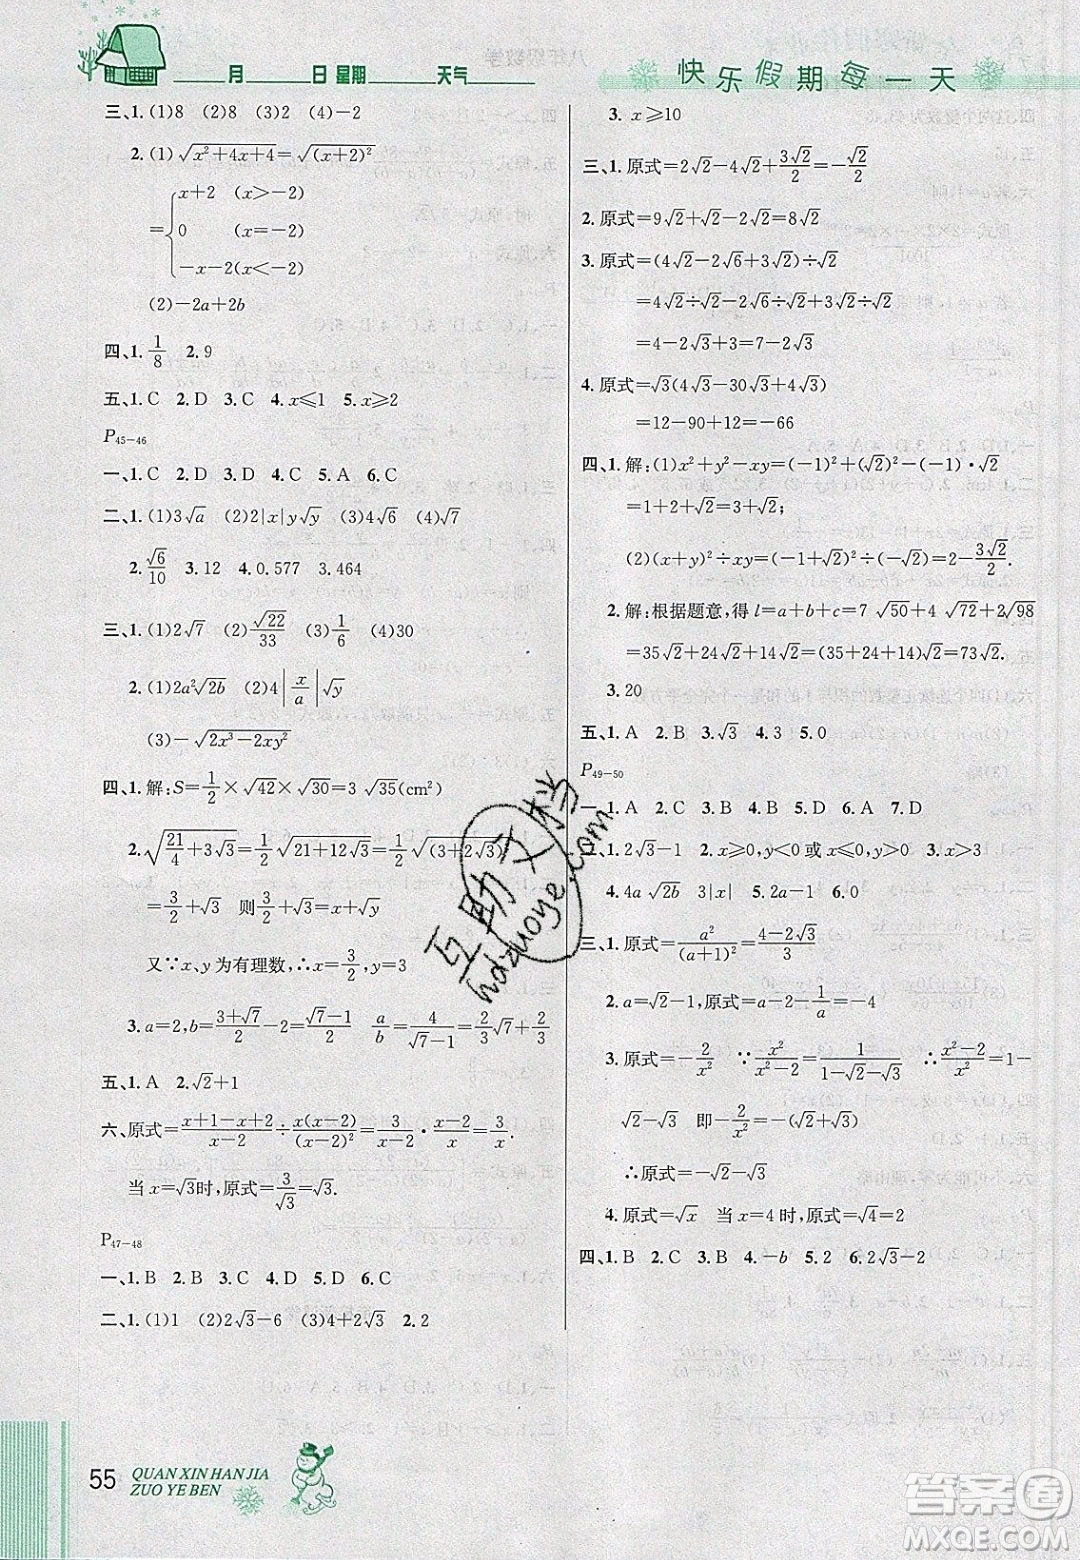 ____月____日 星期____天气____
快乐假期每一天
三、1.(1)8 (2)8 (3)2 (4)-2
2.(1)√(x²+4x+4)=√((x+2)²)
={x+2 (x>-2)
0 (x=-2)
-x-2(x<-2)
(2)-2a+2b
四、1.1/8 2.9
五、1.C 2.D 3.C 4.x≤1 5.x≥2
P45-46
一、1.C 2.D 3.C 4.D 5.A 6.C
二、1.(1)3√a (2)2|x|y√y (3)4√x (4)√y
2.√6/10 3.12 4.0.577 3.464
三、1.(1)2√7 (2)√22/33 (3)1/6 (4)30
2.(1)2a²√(2b) (2)4|x/a|√y
(3)-√(2x³-2xy²)
四、1.解:S=1/2×√42×√30=3√35(cm²)
2.√(21/4+3√3)=1/2√(21+12√3)=1/2√((3+2√3)²)
=3/2+√3 则3/2+√3=x+√y
又∵x、y为有理数,∴x=3/2,y=3
3.a=2,b=(3+√7)/2-2=(√7-1)/2 a/b=4/(√7-1)=2/3√7+2/3
五、1.A 2.√2+1
六、原式=(x+1-x+2)/(x-2)÷x(x-2)/(x-2)²=3/(x-2)·(x-2)/x=3/x.
当x=√3时,原式=3/√3=√3.
P47-48
一、1.B 2.B 3.C 4.D 5.D 6.C
二、1.(1)1 (2)2√3-6 (3)4+2√3 2.2
3. x≥10
三、1.原式=2√2-4√2+3√2/2=-√2/2
2.原式=9√2+√2-2√2=8√2
3.原式=(4√2-2√6+3√2)÷√2
=4√2÷√2-2√6÷√2+3√2÷√2
=4-2√3+3=7-2√3
4.原式=√3(4√3-30√3+4√3)
=12-90+12=-66
四、1.解:(1)x²+y²-xy=(-1)²+(√2)²-(-1)·√2
=1+2+√2=3+√2;
(2)(x+y)²÷xy=(-1+√2)²÷(-√2)=2-3√2/2.
2.解:根据题意,得l=a+b+c=7√50+4√72+2√98
=35√2+24√2+14√2=(35+24+14)√2=73√2.
3.20
五、1.A 2.B 3.√3 4.3 5.0
P49-50
一、1.A 2.C 3.B 4.D 5.B 6.A 7.D
二、1.2√3-1 2.x≥0,y<0或x≤0,y<0 3.x>3
4.4a√(2b) 3|x| 5.2a-1 6.0
三、1.原式=a²/(a+1)²=(4-2√3)/3
2.a=√5-1,原式=a-2-1/a=-4
3.原式=-2/x² ∵x²/(x²-2)=1/(1-√2-√3) ∴(x²-2)/x²=1-
√2-√3 即-2/x²=-√2-√3
∴原式=-√2-√3
4.原式=√x 当x=4时,原式=√4=2
四、1.B 2.C 3.B 4.-b 5.2 6.2√3-2
55
QUAN XIN HAN JIA
ZUO YE BEN
互助文档
hdzuoye.com
答案圈
MXQE.COM